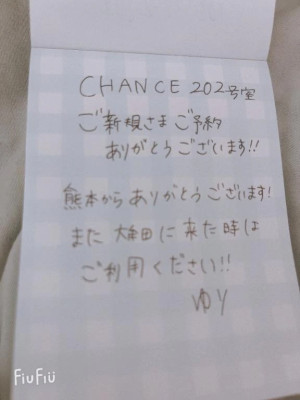 CHANCE 202号室
ご新規さまご予約
ありがとうございます!!
熊本からありがとうございます!
また大牟田に来た時は
ご利用ください!!
ゆり
FiuFiu